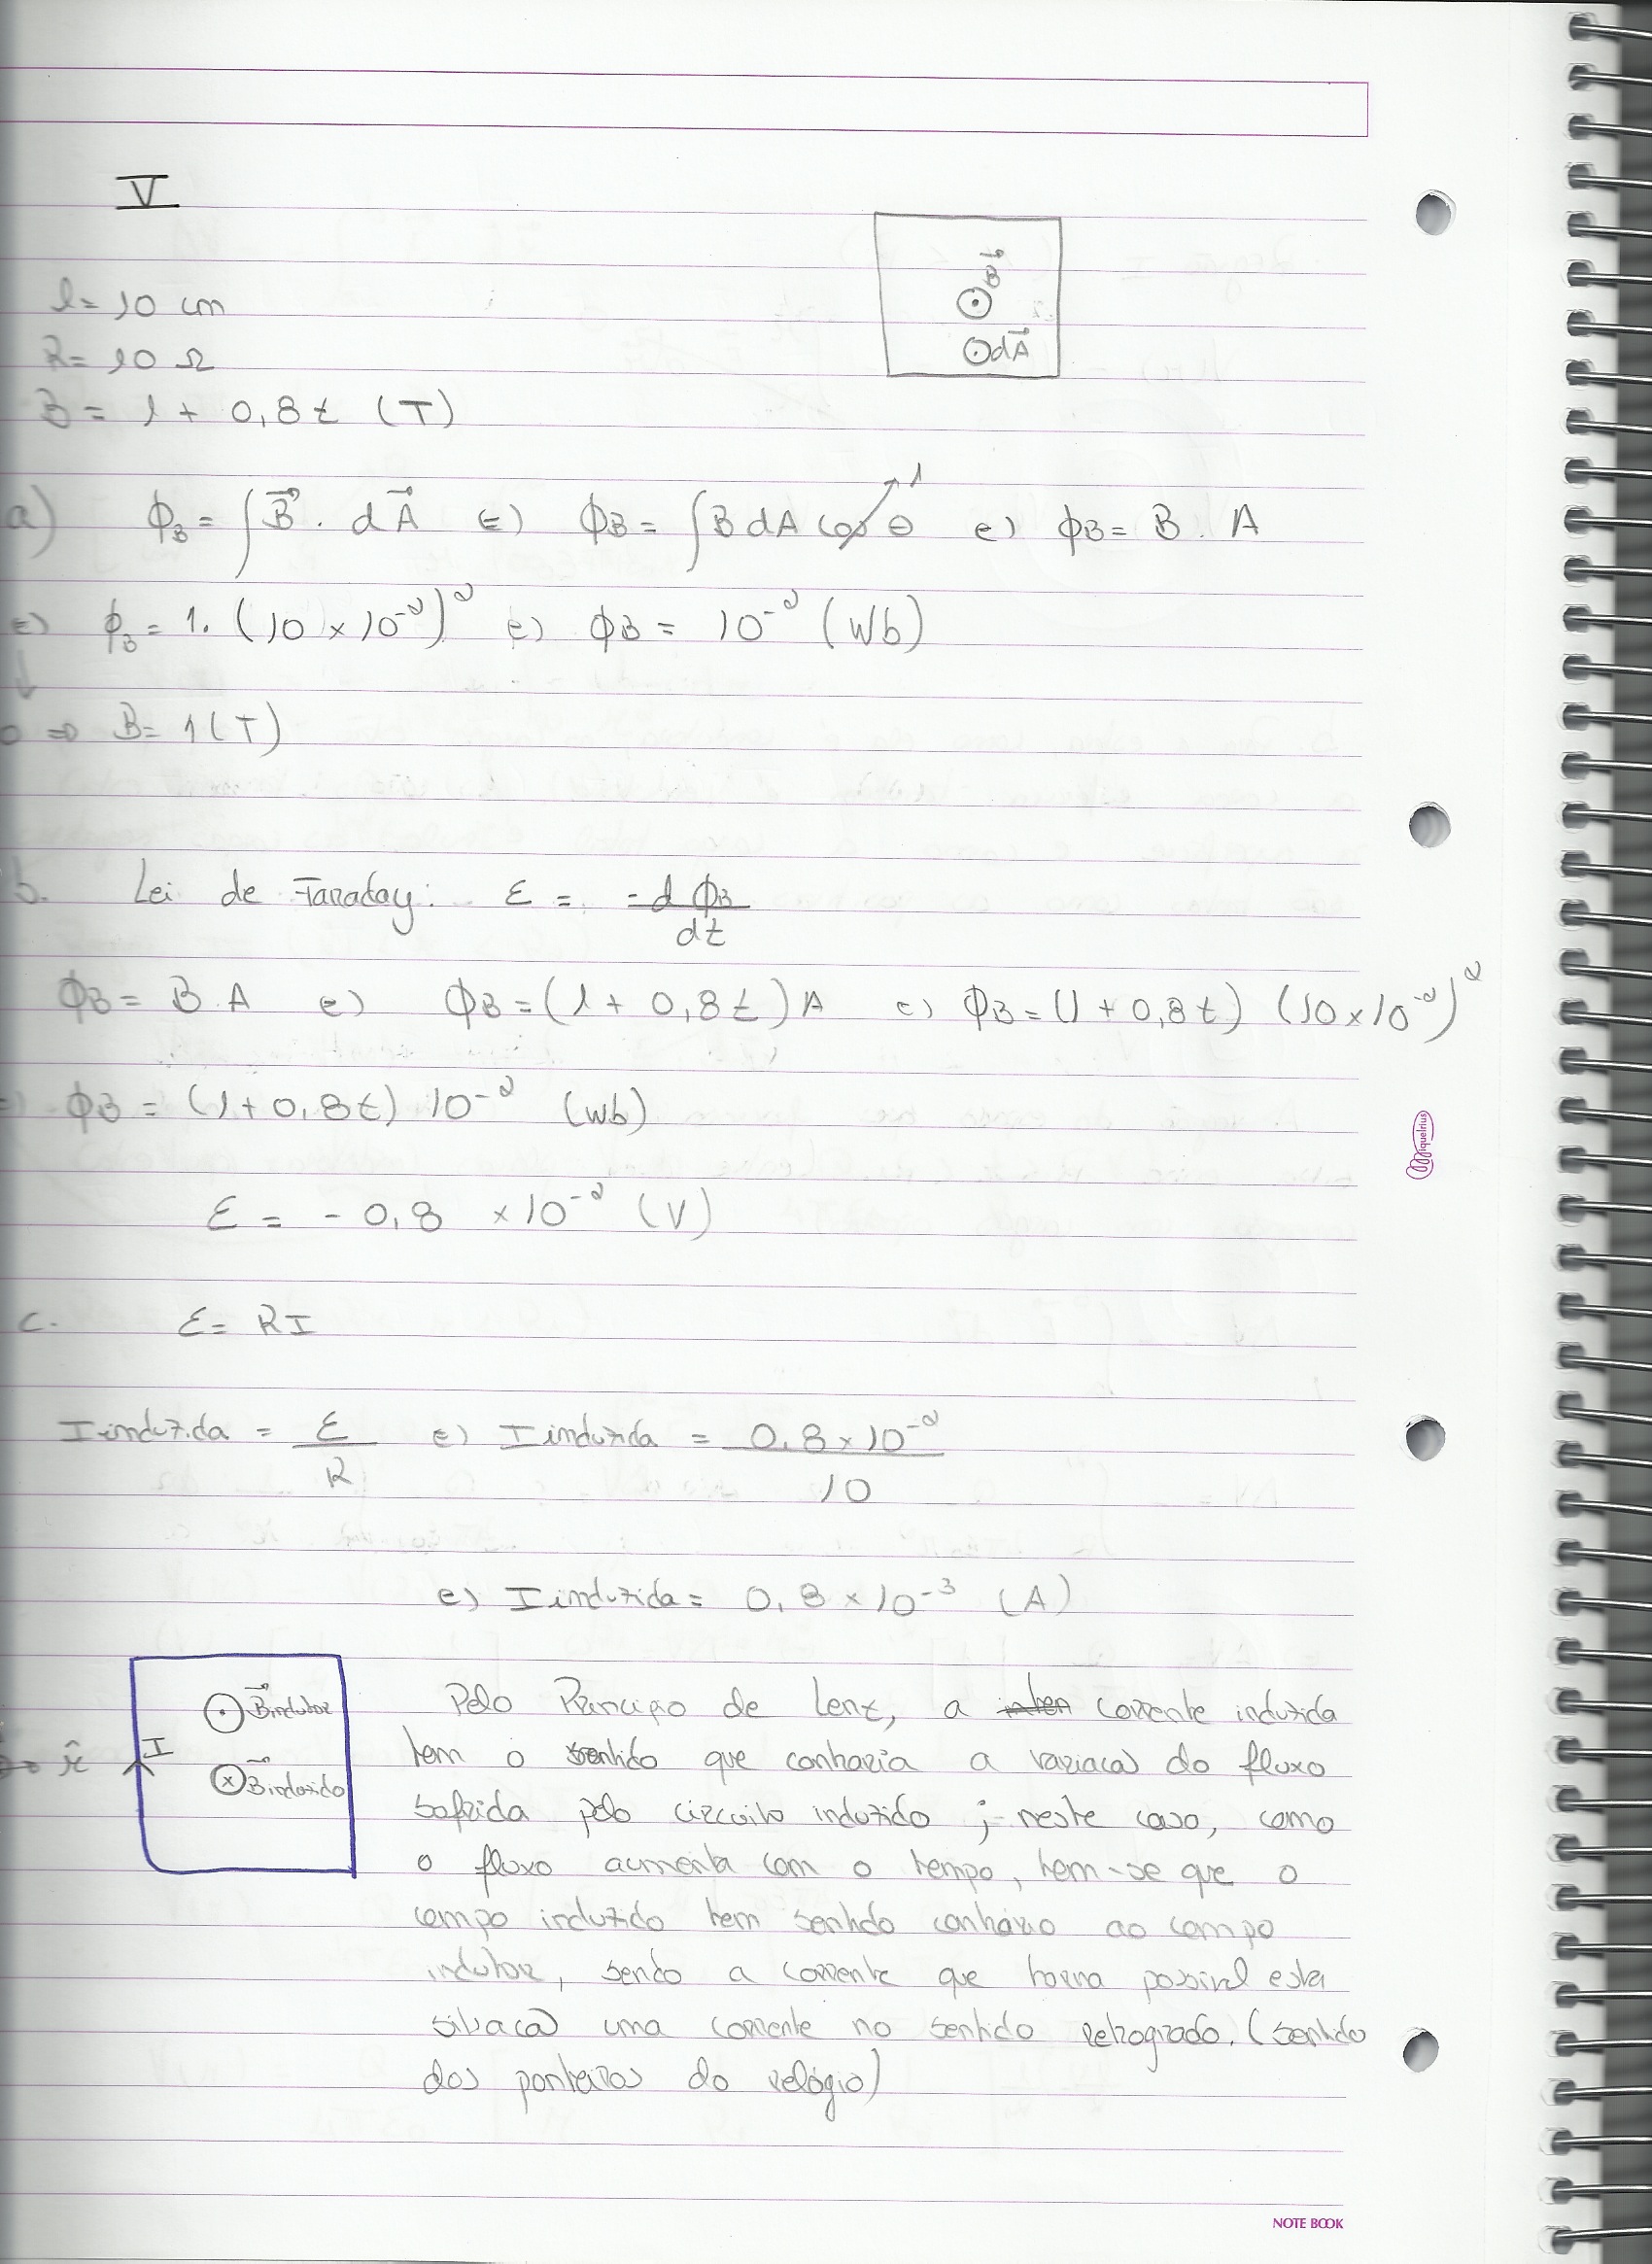 V
B↑
dA⃗
l = 10 cm
R = 10 Ω
B = 1 + 0,8t (T)
a) ϕB = ∫ B⃗ . dA⃗ (=) ϕB = ∫ B dA cos θ 1 (=) ϕB = B . A
(=) ϕB = 1. (10 × 10⁻²)² (=) ϕB = 10⁻² (Wb)
↓
0 => B = 1 (T)
b. Lei de Faraday: ε = -dϕB/dt
ϕB = B.A (=) ϕB = (1 + 0,8t) A (=) ϕB = (1 + 0,8t) (10×10⁻²)²
(=) ϕB = (1+0,8t) 10⁻² (Wb)
ε = - 0,8 × 10⁻² (V)
c. ε = RI
I induzida = ε/R (=) I induzida = 0,8 × 10⁻²/10
(=) I induzida = 0,8 × 10⁻³ (A)
B⃗ indutor
I
B⃗ induzido
Pelo Principio de Lenz, a corrente induzida
tem o sentido que contraria a variacao do fluxo
sofrida pelo circuito induzido ; neste caso, como
o fluxo aumenta com o tempo, tem-se que o
campo induzido tem sentido contrário ao campo
indutor, sendo a corrente que torna possivel esta
situacao uma corrente no sentido retrogrado. (sentido
dos ponteiros do relógio)
Miquelrius
NOTE BOOK